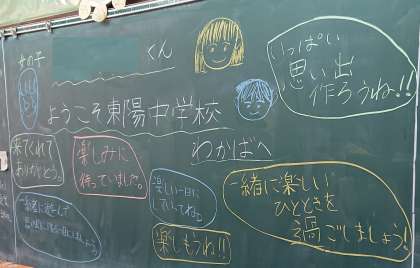 女の子
くん
ようこそ東陽中学校
わかばへ
いっぱい
思い出
作ろうね!!
来てくれて
ありがとう。
楽しみに
待っていました。
楽しい一日に
していってね
楽しもうね!!
一緒に楽しい
ひとときを
過ごしましょう!